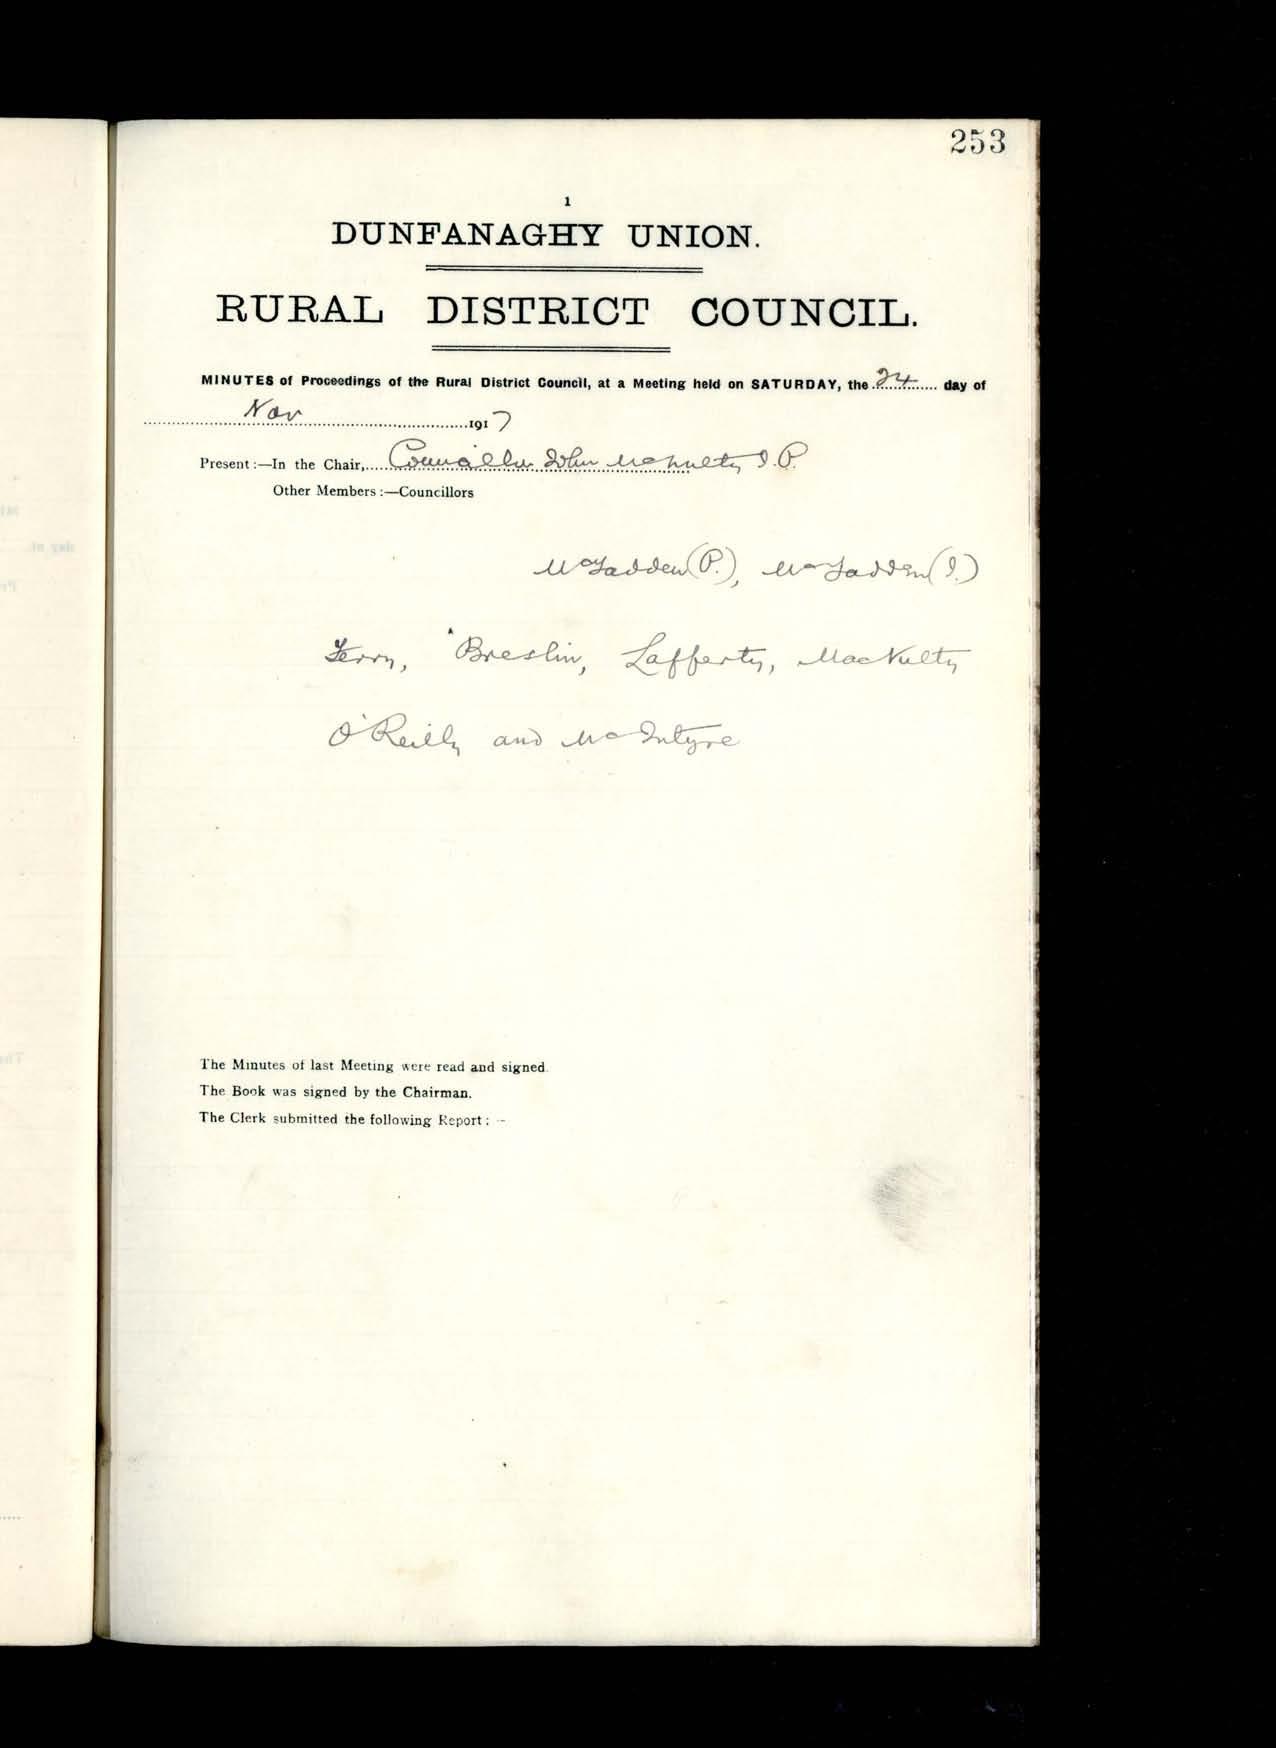 253
1
DUNFANAGHY UNION.
RURAL DISTRICT COUNCIL.
MINUTES of Proceedings of the Rural District Council, at a Meeting held on SATURDAY, the 24 day of
Nov 1917
Present:—In the Chair, Councillor John McNulty J.P.
Other Members:—Councillors
McFadden (P.), McFadden (J.)
Ferry, Breslin, Lafferty, MacNulty
O'Reilly and McIntyre
The Minutes of last Meeting were read and signed.
The Book was signed by the Chairman.
The Clerk submitted the following Report: —